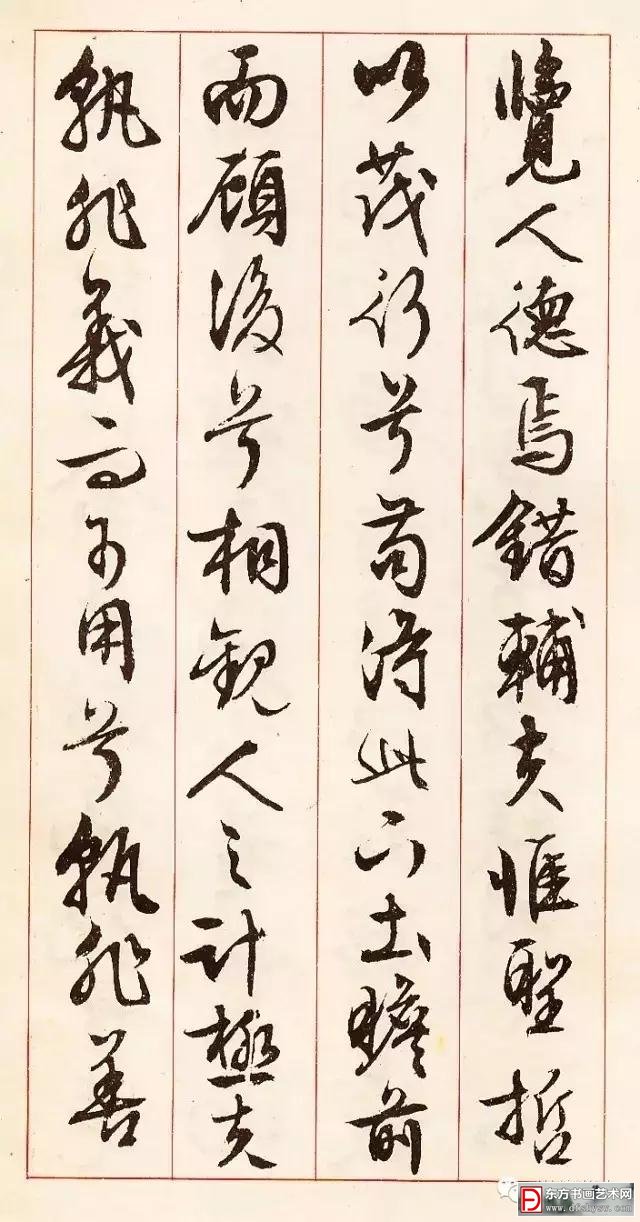 覽人德焉錯輔夫惟聖哲
以茂行兮苟得此下土瞻前
而顧後兮相觀人之計極夫
孰非義而可用兮孰非善
东方书画艺术网
www.dfshysw.com